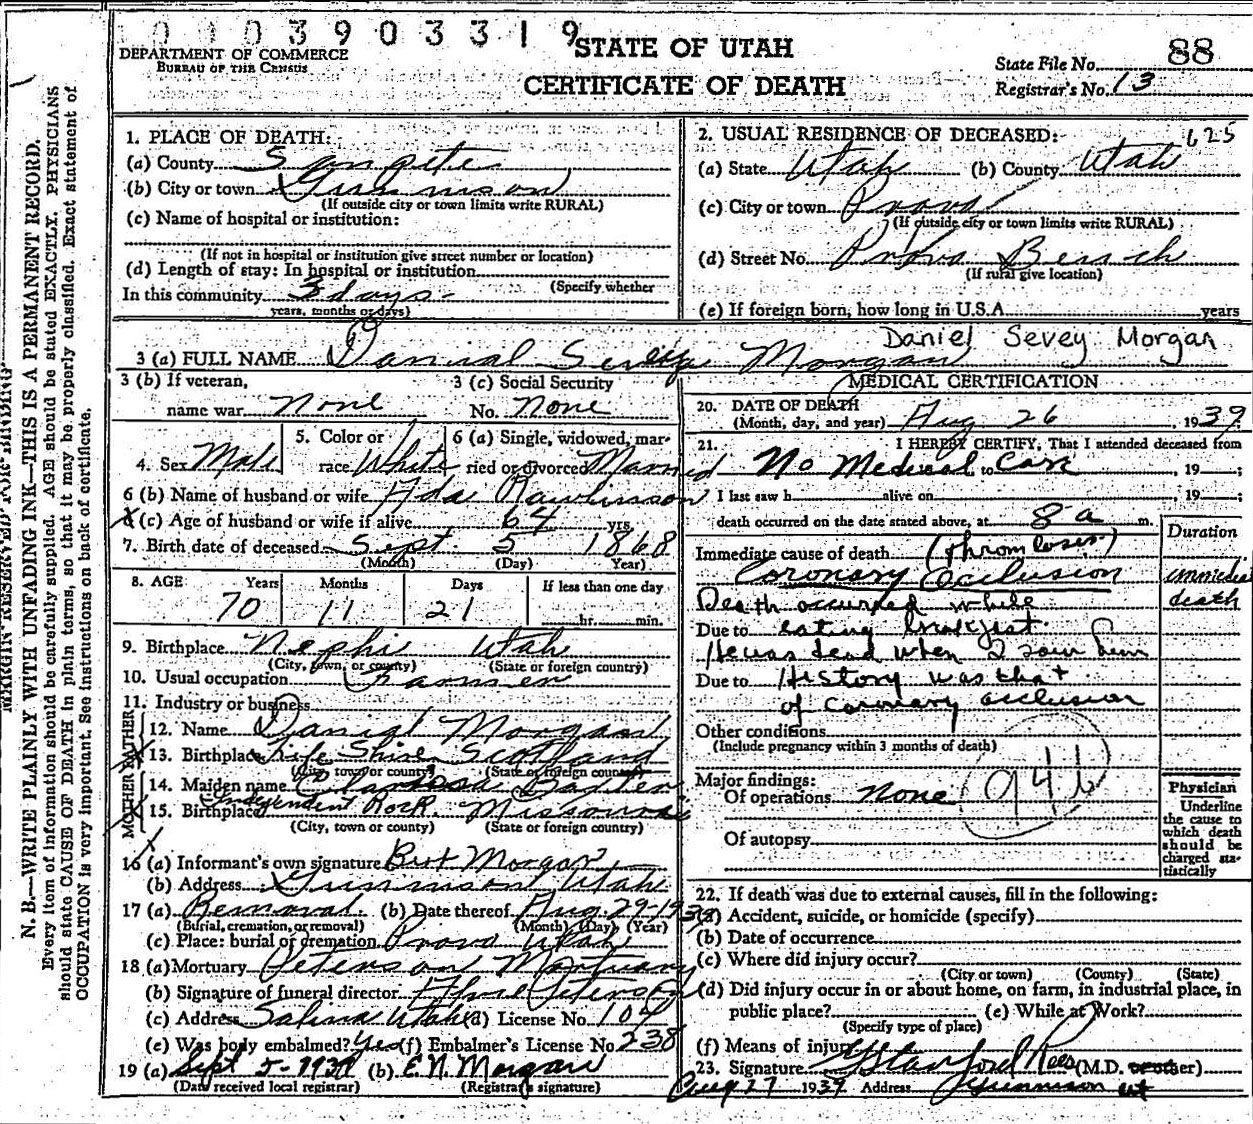 0003903319
DEPARTMENT OF COMMERCE
BUREAU OF THE CENSUS
STATE OF UTAH
CERTIFICATE OF DEATH
State File No. 88
Registrar's No. 13
MARGIN RESERVED FOR BINDING
N. B.—WRITE PLAINLY WITH UNFADING INK—THIS IS A PERMANENT RECORD.
Every item of information should be carefully supplied. AGE should be stated EXACTLY. PHYSICIANS
should state CAUSE OF DEATH in plain terms, so that it may be properly classified. Exact statement of
OCCUPATION is very important. See instructions on back of certificate.
1. PLACE OF DEATH:
(a) County Sanpete
(b) City or town Gunnison
(If outside city or town limits write RURAL)
(c) Name of hospital or institution:
(If not in hospital or institution give street number or location)
(d) Length of stay: In hospital or institution
(Specify whether
In this community 3 days
years, months or days)
2. USUAL RESIDENCE OF DECEASED: 625
(a) State Utah (b) County Utah
(c) City or town Provo
(If outside city or town limits write RURAL)
(d) Street No. Provo Bench
(If rural give location)
(e) If foreign born, how long in U.S.A. years
Daniel Sevey Morgan
3 (a) FULL NAME Danial Sevey Morgan
3 (b) If veteran,
name war None
3 (c) Social Security
No. None
4. Sex Male
5. Color or
race White
6 (a) Single, widowed, mar-
ried or divorced Married
6 (b) Name of husband or wife Ada Rawlinson
6 (c) Age of husband or wife if alive 64 yrs.
7. Birth date of deceased Sept. 5 1868
(Month) (Day) Year)
8. AGE Years Months Days If less than one day
70 11 21 hr. min.
9. Birthplace Nephi Utah
(City, town, or county) (State or foreign country)
10. Usual occupation Farmer
11. Industry or business
FATHER
12. Name Danial Morgan
13. Birthplace Fife Shire Scotland
(City, town or county) (State or foreign country)
MOTHER
14. Maiden name Baxter
15. Birthplace Independent Rock. Missouri
(City, town or county) (State or foreign country)
16 (a) Informant's own signature Burt Morgan
(b) Address Gunnison Utah
17 (a) Removal (b) Date thereof Aug. 29-1939
(Burial, cremation, or removal) (Month) (Day) (Year)
(c) Place: burial or cremation Provo Utah
18 (a) Mortuary Peterson Mortuary
(b) Signature of funeral director Peterson
(c) Address Salina Utah (d) License No. 104
(e) Was body embalmed? Yes (f) Embalmer's License No 238
19 (a) Sept 5-1939 (b) E.N. Morgan
(Date received local registrar) (Registrar's signature)
MEDICAL CERTIFICATION
20. DATE OF DEATH
(Month, day, and year) Aug 26, 1939
21. I HEREBY CERTIFY, That I attended deceased from
No Medical to Care, 19
I last saw h alive on , 19 ;
death occurred on the date stated above, at 8 a m.
Duration
Immediate cause of death (thromboses)
Coronary Occlusion immediate
Death occurred while death
Due to eating breakfast
He was dead when I saw him
Due to History was that
of coronary occlusion
Other conditions
(Include pregnancy within 3 months of death)
Major findings:
Of operations None 94b
Of autopsy
Physician
Underline
the cause to
which death
should be
charged sta-
tistically
22. If death was due to external causes, fill in the following:
(a) Accident, suicide, or homicide (specify)
(b) Date of occurrence
(c) Where did injury occur?
(City or town) (County) (State)
(d) Did injury occur in or about home, on farm, in industrial place, in
public place? (e) While at Work?
(Specify type of place)
(f) Means of injury
23. Signature G Stanford Rees (M.D. or other)
Aug 27 1939 Address Gunnison Ut